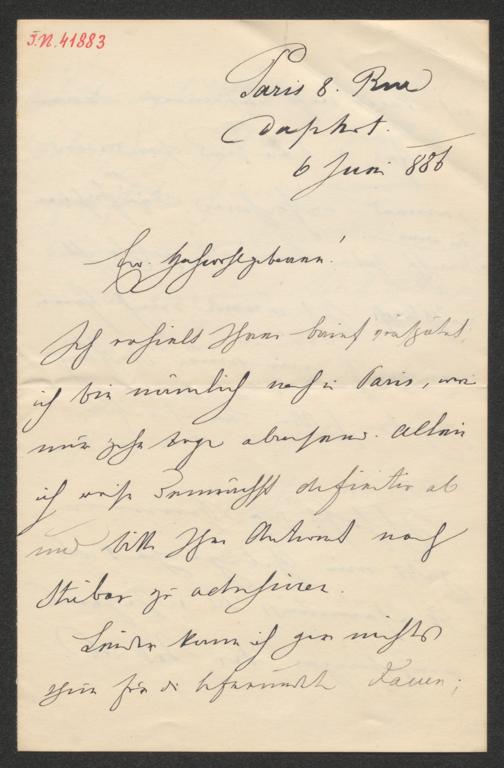 I.N. 41883
Paris 8. Rue
Daphot.
6 Juni 886
Ew. Hochwohlgeboren!
Ich erhielt Ihren Brief verspätet,
ich bin nämlich noch in Paris, war
nur zehn Tage abwesend. Allein
ich reise demnächst definitiv ab
und bitte Ihre Antwort nach
Stübar zu adressieren.
Leider kann ich gar nichts
thun für die befreundete